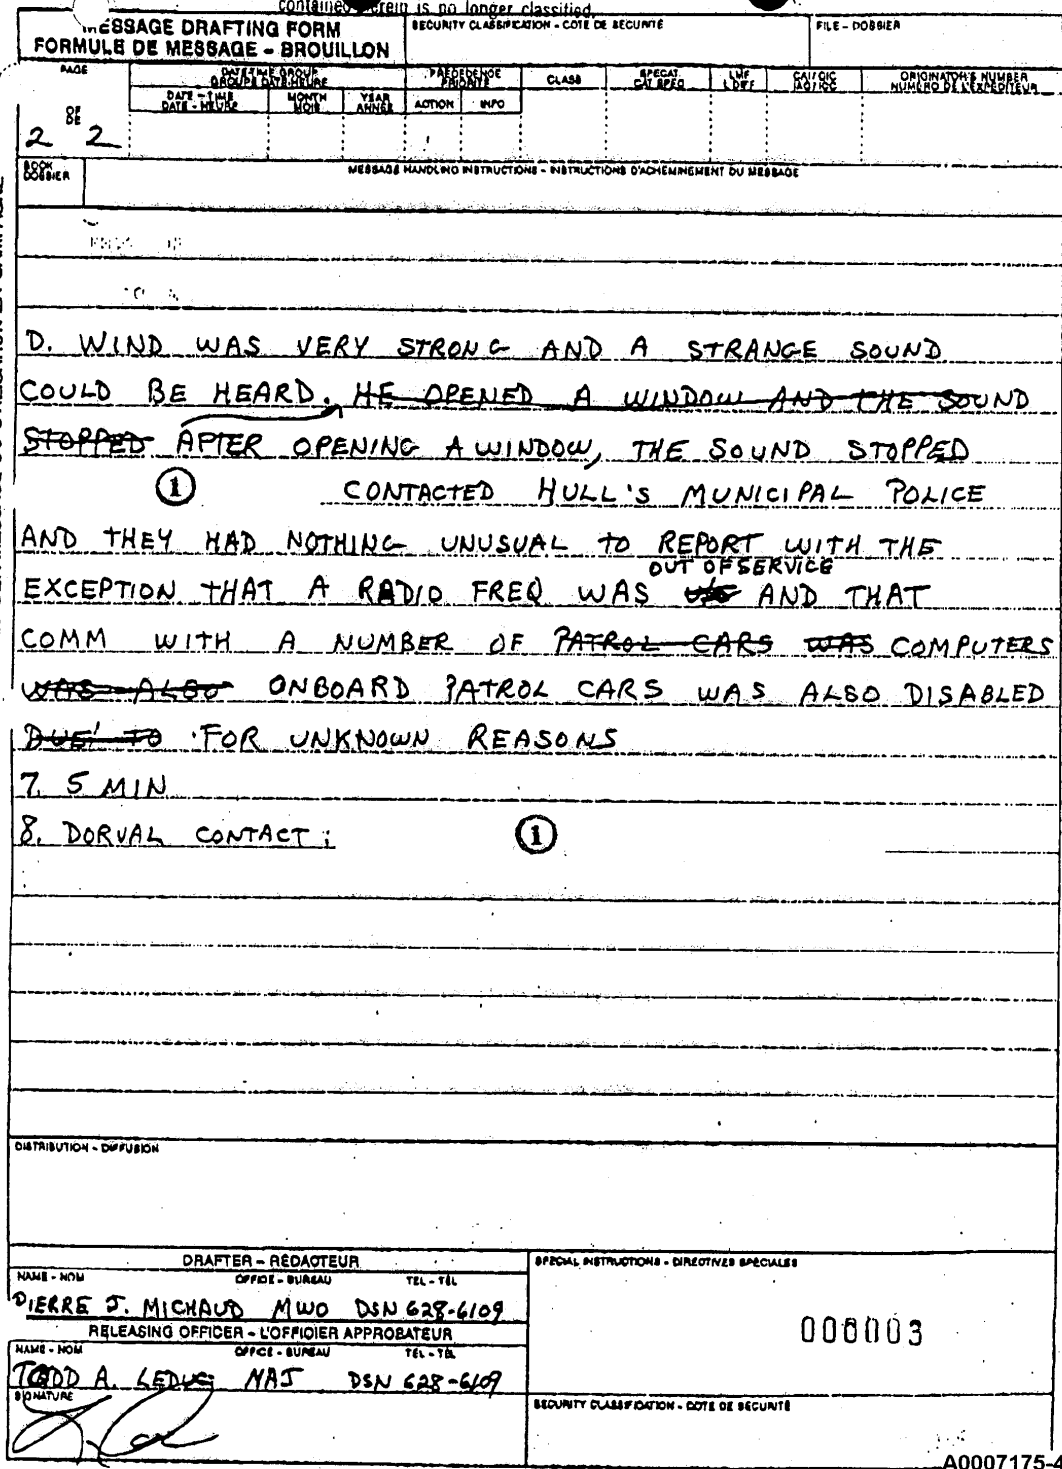 contained herein is no longer classified.
MESSAGE DRAFTING FORM
FORMULE DE MESSAGE - BROUILLON
SECURITY CLASSIFICATION - COTE DE SECURITÉ
FILE - DOSSIER
PAGE
DATE-TIME GROUP
GROUPE DATE-HEURE
PRECEDENCE
PRIORITÉ
CLASS
SPECAT
CAT SPÉC
LMF
CAI/CIC
ORIGINATOR'S NUMBER
NUMÉRO DE L'EXPÉDITEUR
DATE - TIME
DATE - HEURE
MONTH
MOIS
YEAR
ANNÉE
ACTION
INFO
OF
DE
2 2
BOOK
DOSSIER
MESSAGE HANDLING INSTRUCTIONS - INSTRUCTIONS D'ACHEMINEMENT DU MESSAGE
D. WIND WAS VERY STRONG AND A STRANGE SOUND
COULD BE HEARD. HE OPENED A WINDOW AND THE SOUND
STOPPED AFTER OPENING A WINDOW, THE SOUND STOPPED
1 CONTACTED HULL'S MUNICIPAL POLICE
AND THEY HAD NOTHING UNUSUAL TO REPORT WITH THE
OUT OF SERVICE
EXCEPTION THAT A RADIO FREQ WAS AND THAT
COMM WITH A NUMBER OF PATROL CARS WAS COMPUTERS
WAS ALSO ONBOARD PATROL CARS WAS ALSO DISABLED
DUE TO FOR UNKNOWN REASONS
7. 5 MIN
8. DORVAL CONTACT: 1
DISTRIBUTION - DIFFUSION
DRAFTER - RÉDACTEUR
NAME - NOM OFFICE - BUREAU TEL - TÉL
PIERRE J. MICHAUD MWO DSN 628-6109
RELEASING OFFICER - L'OFFICIER APPROBATEUR
NAME - NOM OFFICE - BUREAU TEL - TÉL
TODD A. LEDUC MAJ DSN 628-6109
SIGNATURE
SPECIAL INSTRUCTIONS - DIRECTIVES SPÉCIALES
000003
SECURITY CLASSIFICATION - COTE DE SÉCURITÉ
A0007175-4